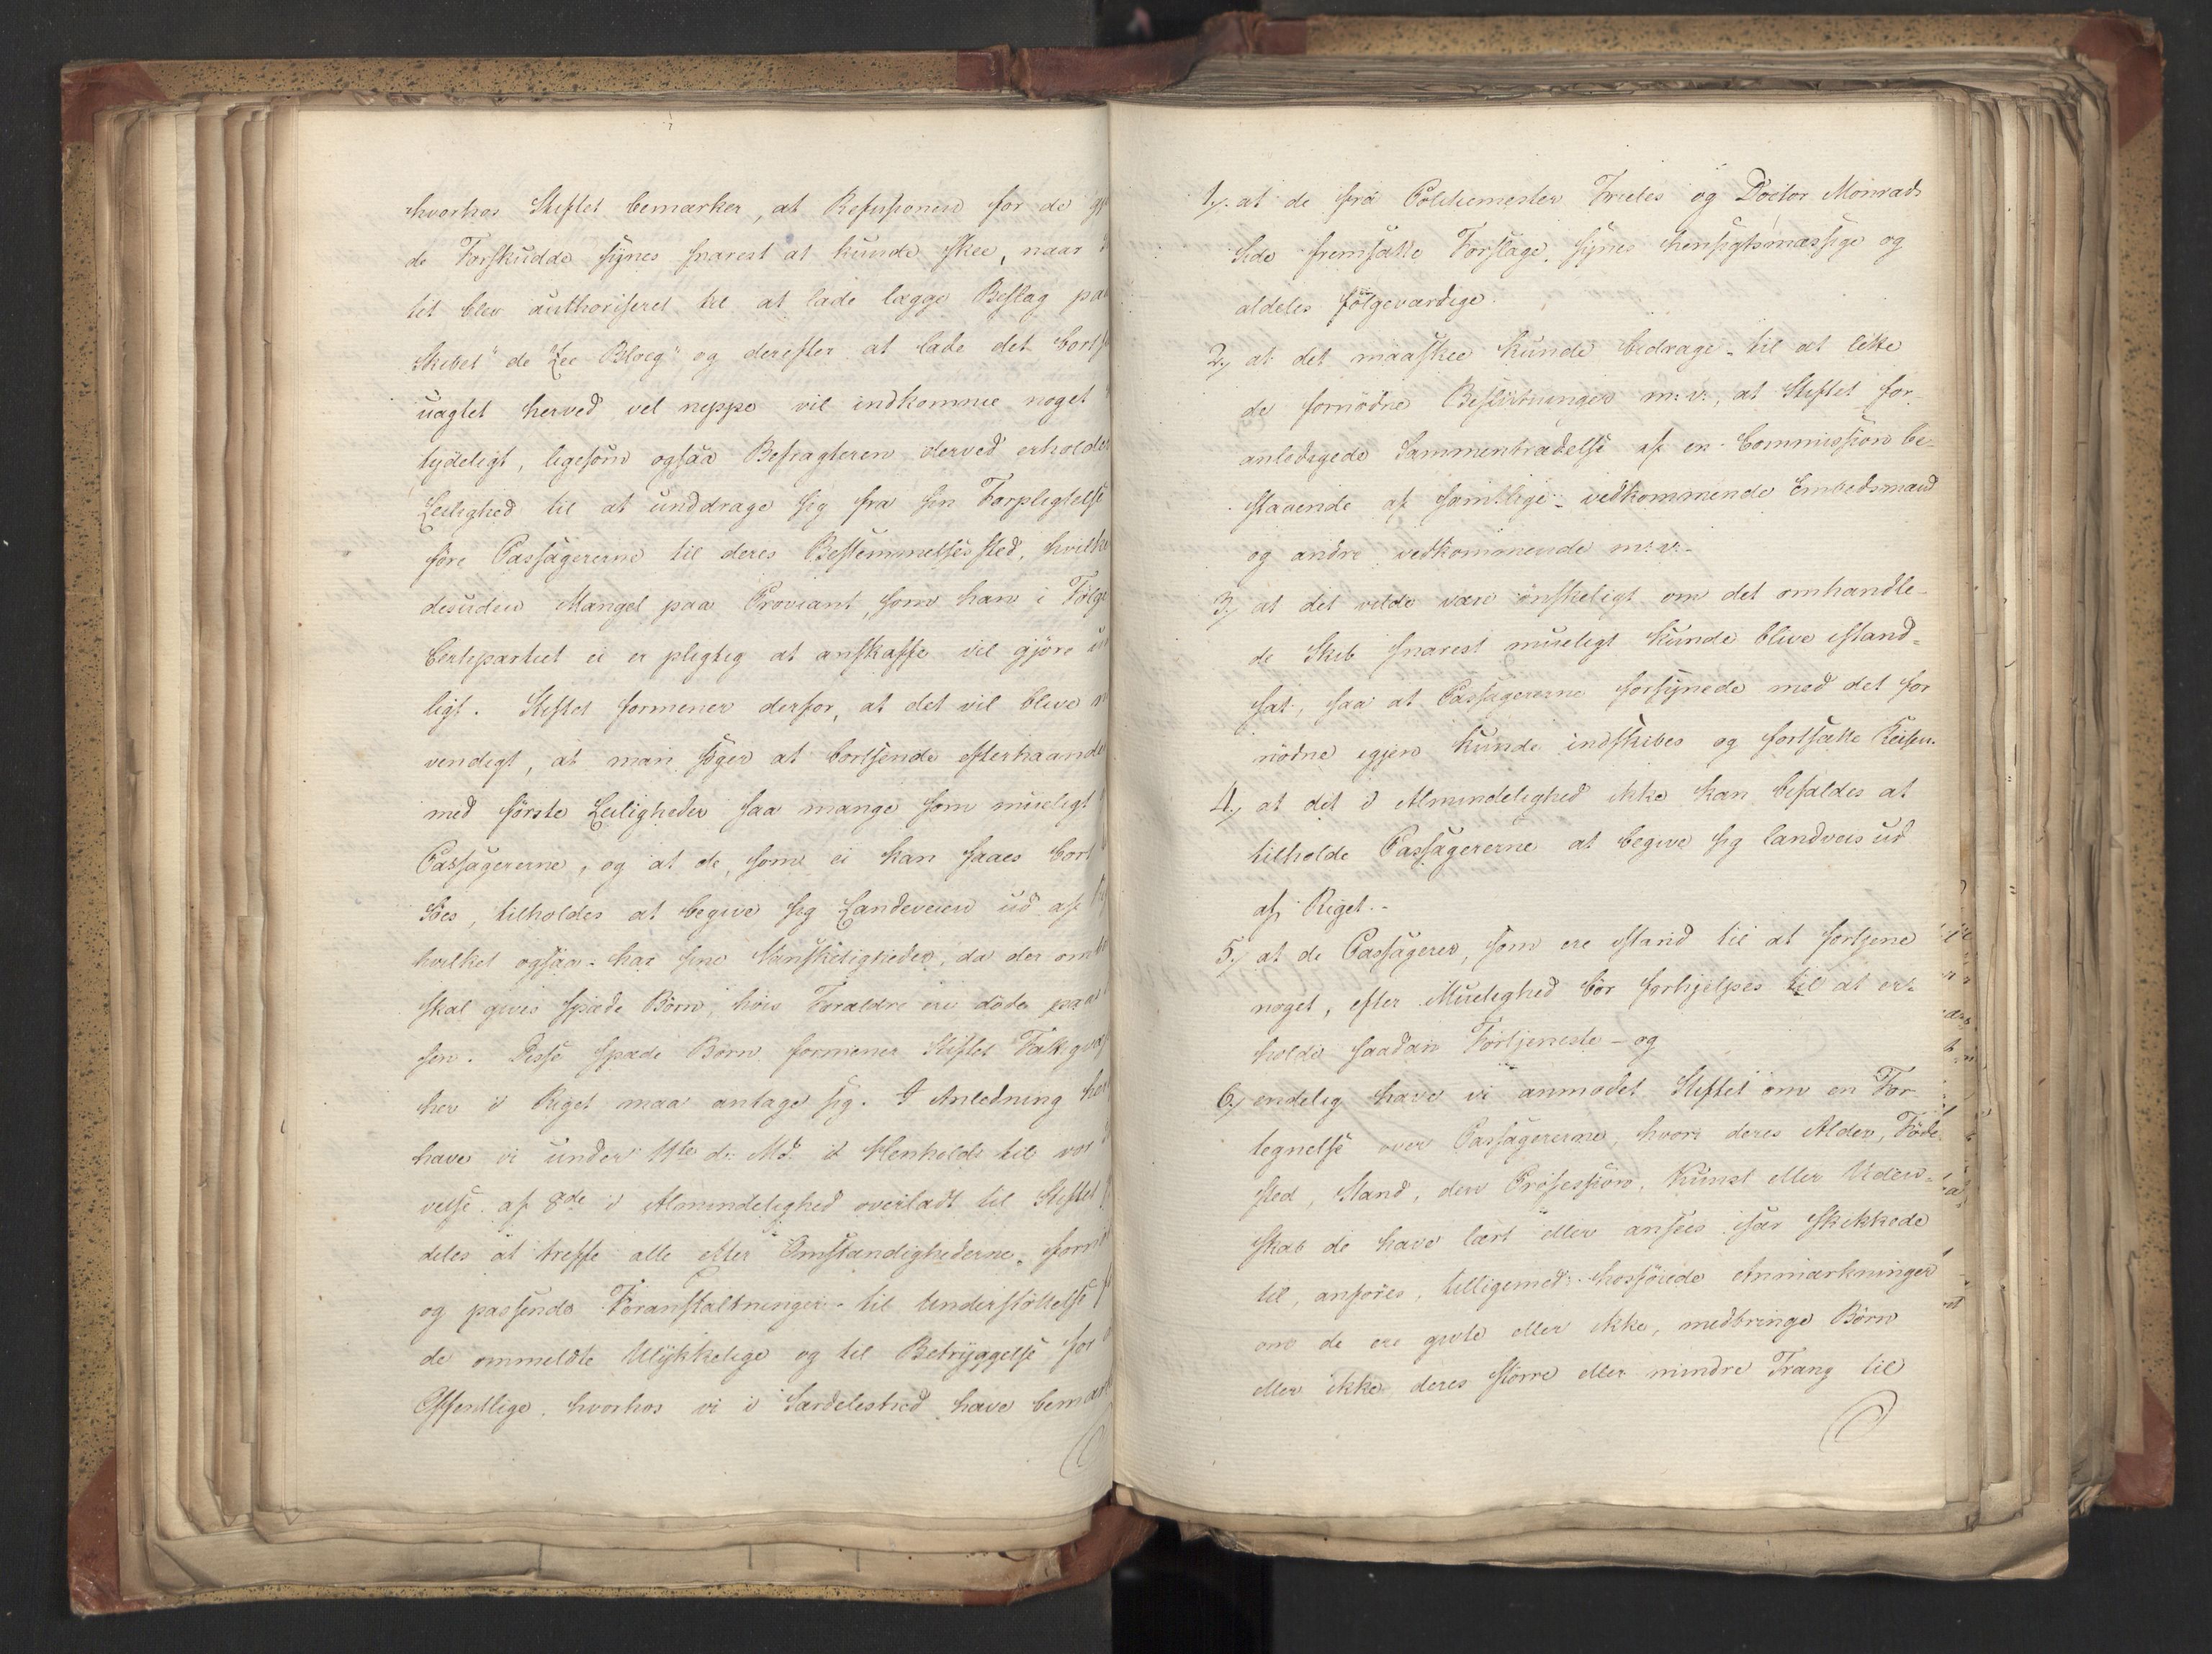 hvorhos Stiftet bemærker, at Refusionen for de
de Forskudde synes snarest at kunde skee, naar
tet blev authoriseret til at lade lægge Beslag paa
Skibet "de Zee Ploeg" og derefter at lade det bort
uagtet herved vel neppe vil indkomme noget
tydeligt, ligesom ogsaa Befragteren derved erholder
Leilighed til at unddrage sig fra sin Forpligtelse
føre Passagererne til deres Bestemmelsessted, hvilke
desuden Mangel paa Proviant, som han i Følge
Certepartiet ei er pligtig at anskaffe vil gjøre u
ligt. Stiftet formener derfor, at det vil blive
vendigt, at man søger at bortsende efterhaanden
med første Leiligheder saa mange som mueligt
Passagererne, og at de, som ei kan faaes bort
Søes, tilholdes at begive sig Landeveien ud af
hvilket ogsaa har sine Vanskeligheder, da der om
skal gives spæde Børn, hvis Forældre ere døde paa
sen. Disse spæde Børn formener Stiftet
her i Riget maa antage sig. I Anledning her
have vi under 11te d: Md: i Henhold til vor
velse af 8de i Almindelighed overladt til Stiftet
deles at treffe alle efter Omstændighederne forn
og passende Foranstaltninger til Understøttelse
de ommeldte Ulykkelige og til Betryggelse for
Offentlige, hvorhos vi i Særdeleshed have bemær
1, at de fra Politiemester Frieles og Doctor Monrads
Side fremsatte Forslage, synes hensigtsmæssige og
aldeles følgeværdige.
2, at det maaskee kunde bidrage til at lette
de fornødne Beslutninger m: v:, at Stiftet for-
anledigede Sammentrædelse af en Commission be-
staaende af samtlige vedkommende Embedsmænd
og andre vedkommende m: v:-
3, at det vilde være ønskeligt om det omhandle-
de Skib snarest mueligt kunde blive istand-
sat, saa at Passagererne forsynede med det for
nødne igjen kunde indskibes og fortsætte Reisen.
4, at det i Almindelighed ikke kan befaldes at
tilholde Passagererne at begive sig landveis ud
af Riget.-
5, at de Passagerer, som ere istand til at fortjene
noget, efter Muelighed bør forhjelpes til at er-
holde saadan Fortjeneste - og
6, endelig have vi anmodet Stiftet om en For
tegnelse over Passagererne, hvori deres Alder, Føde
sted, Stand, den Profession, Kunst eller Viden-
skab de have lært eller ansees især skikkede
til, anføres, tilligemed hosføiede Anmærkninger
om de ere givte eller ikke, medbringe Børn
eller ikke, deres større eller mindre Trang til